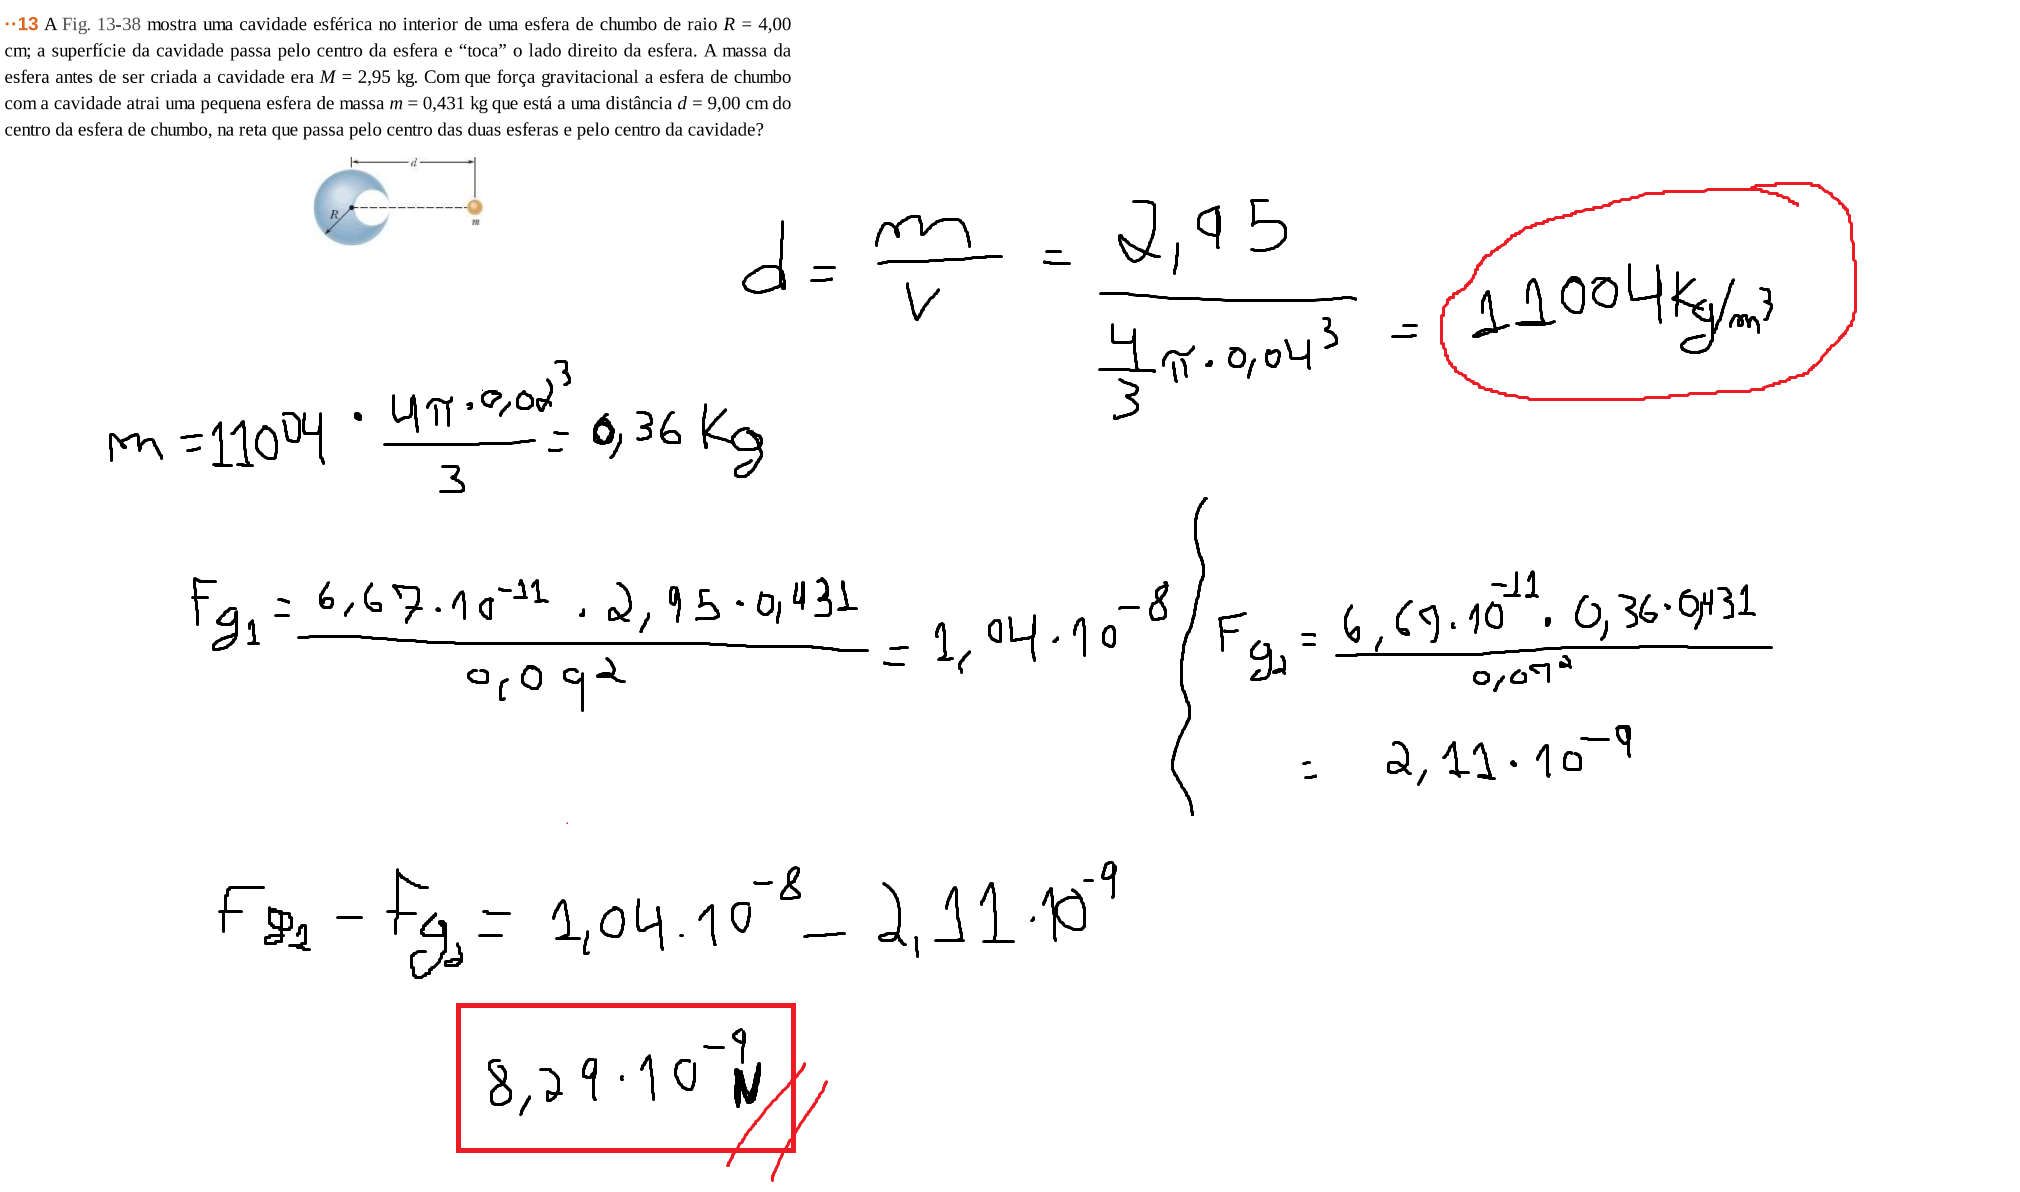 ··13 A Fig. 13-38 mostra uma cavidade esférica no interior de uma esfera de chumbo de raio R = 4,00
cm; a superfície da cavidade passa pelo centro da esfera e “toca” o lado direito da esfera. A massa da
esfera antes de ser criada a cavidade era M = 2,95 kg. Com que força gravitacional a esfera de chumbo
com a cavidade atrai uma pequena esfera de massa m = 0,431 kg que está a uma distância d = 9,00 cm do
centro da esfera de chumbo, na reta que passa pelo centro das duas esferas e pelo centro da cavidade?
d
R
m
d = m/V = 2,95 / (4/3 π · 0,04³) = 11004 Kg/m³
m = 11004 · 4π · 0,02³ / 3 = 0,36 Kg
Fg₁ = 6,67 · 10⁻¹¹ · 2,95 · 0,431 / 0,09² = 1,04 · 10⁻⁸
Fg₂ = 6,67 · 10⁻¹¹ · 0,36 · 0,431 / 0,07²
= 2,11 · 10⁻⁹
Fg₁ - Fg₂ = 1,04 · 10⁻⁸ - 2,11 · 10⁻⁹
8,29 · 10⁻⁹ N